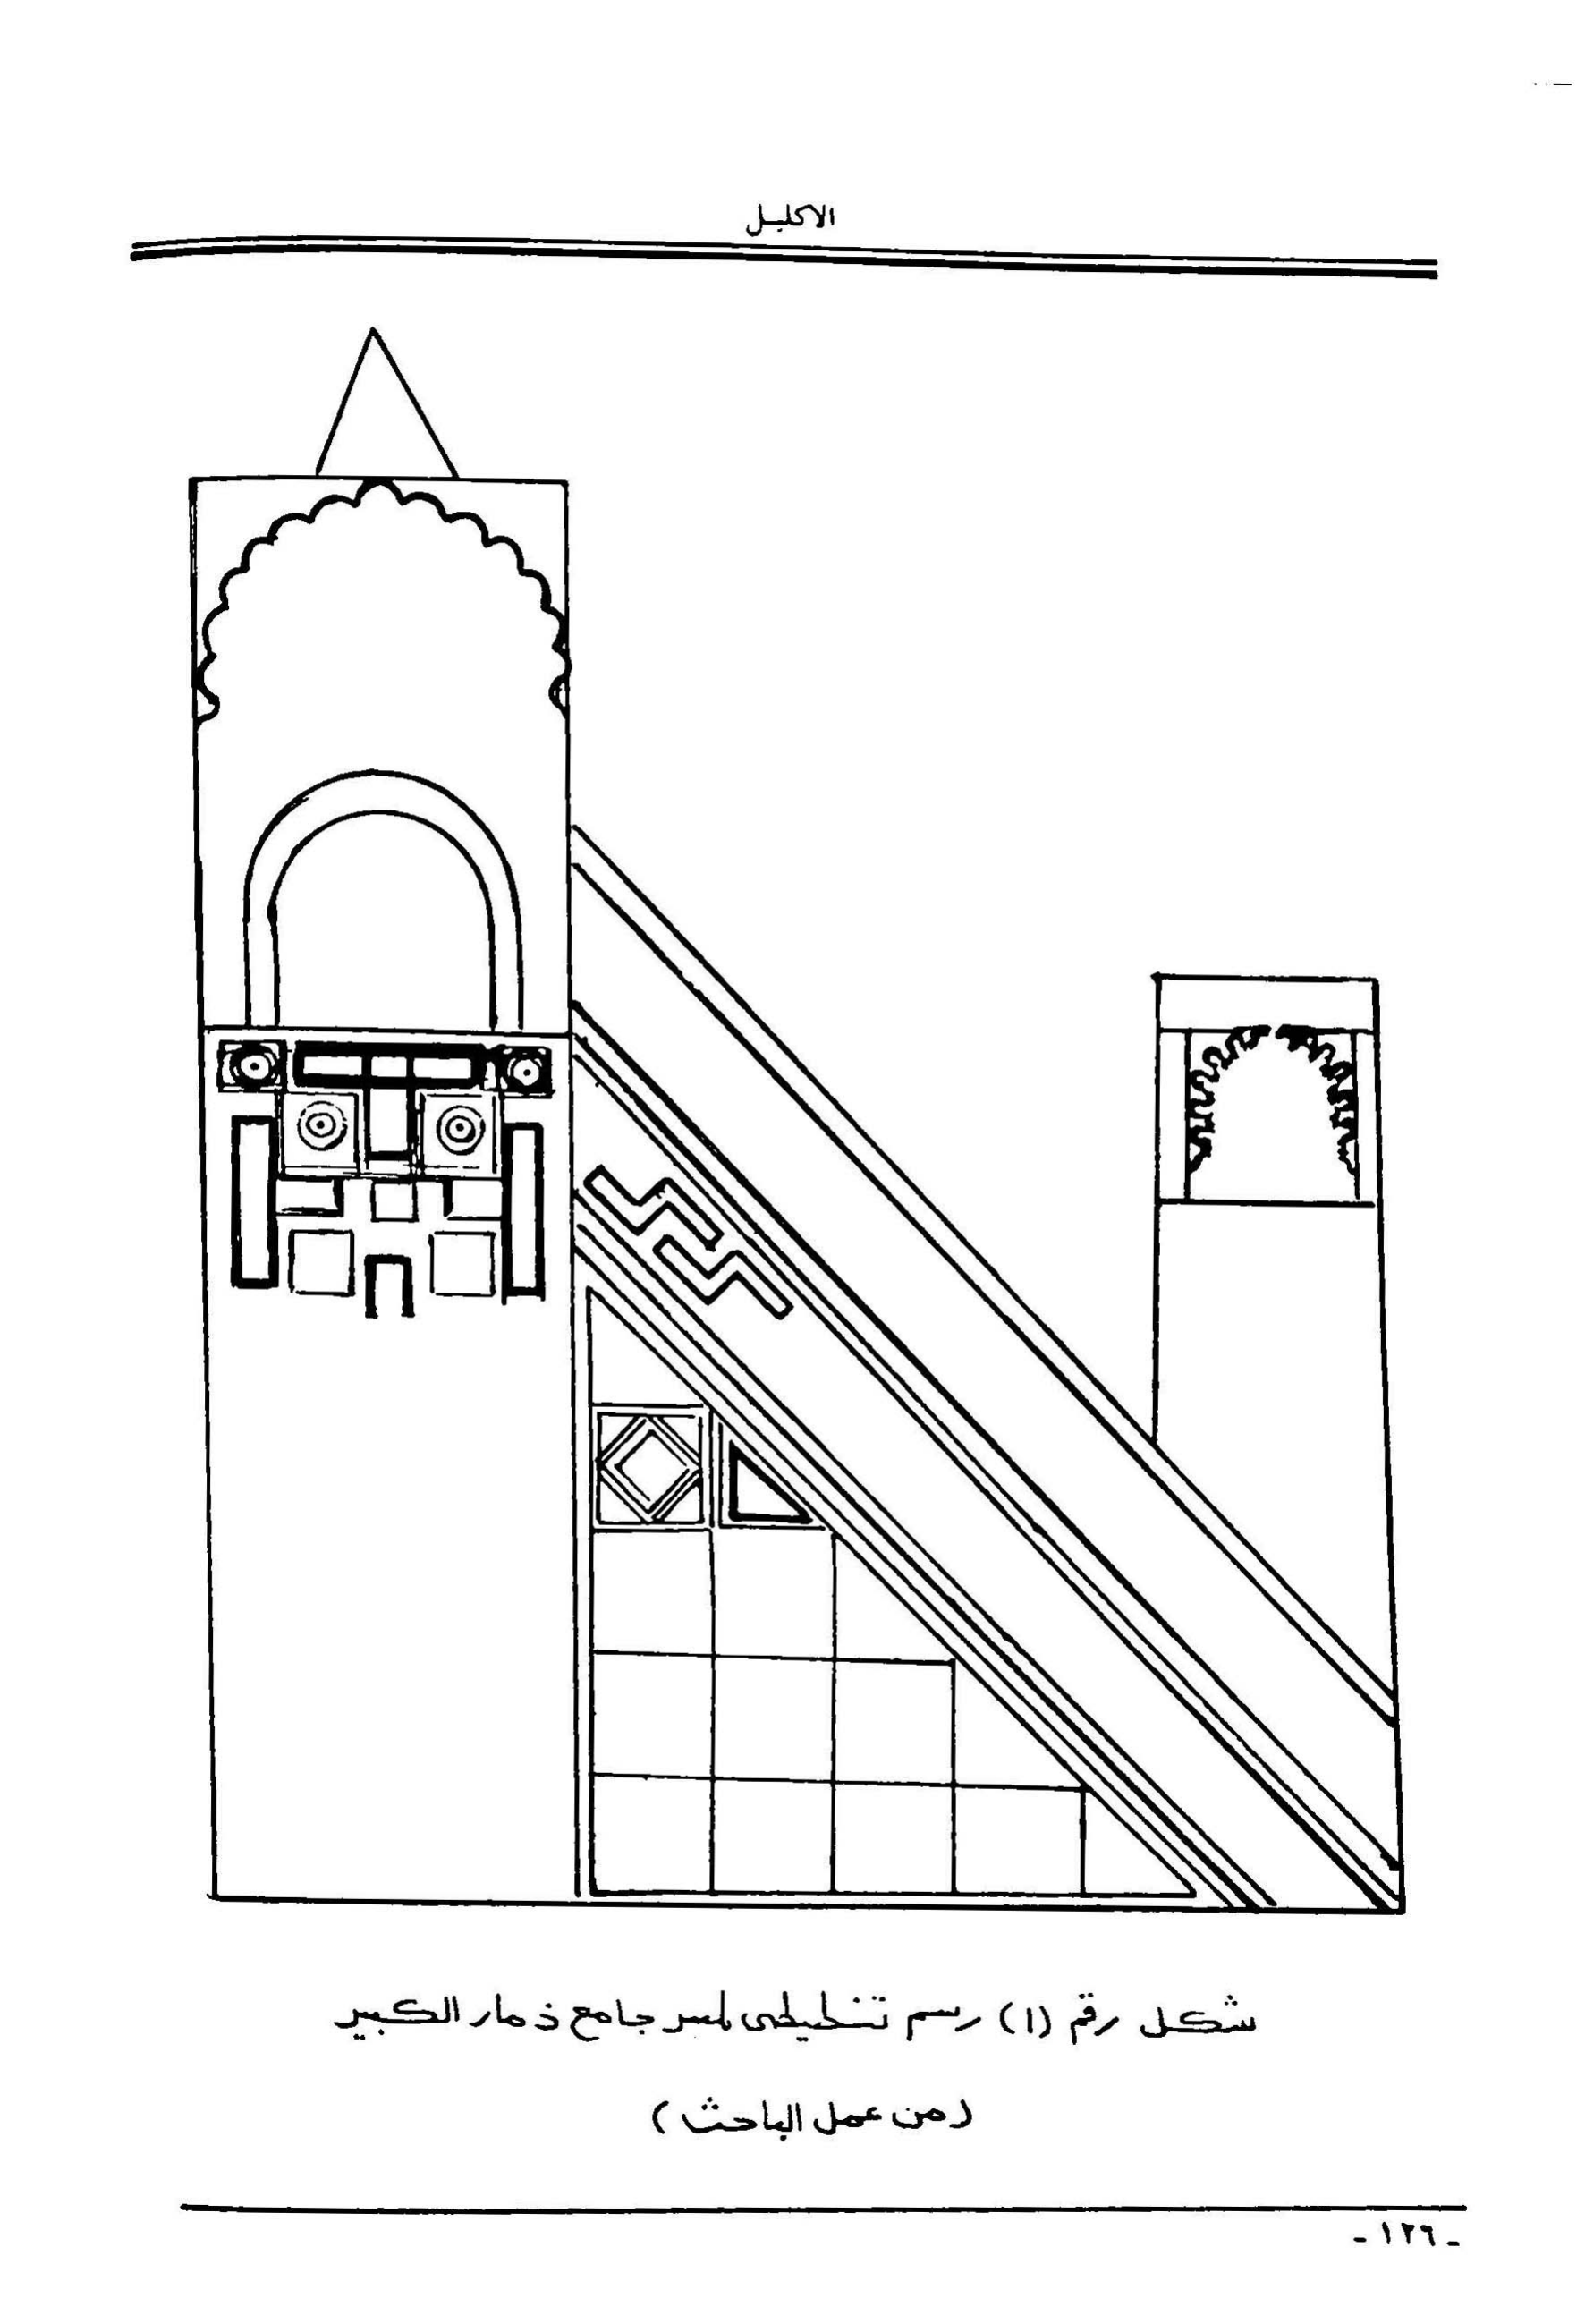 الاكليل
شكل رقم (١) رسم تخطيطى لمنبر جامع ذمار الكبير
(من عمل الباحث)
- ١٢٦ -